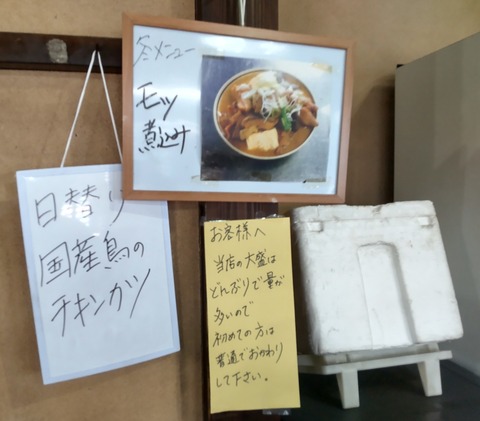 冬メニュー
モツ
煮込み
日替り
国産鳥の
チキンカツ
お客様へ
当店の大盛は
どんぶりで量が
多いので
初めての方は
普通でおかわり
して下さい。